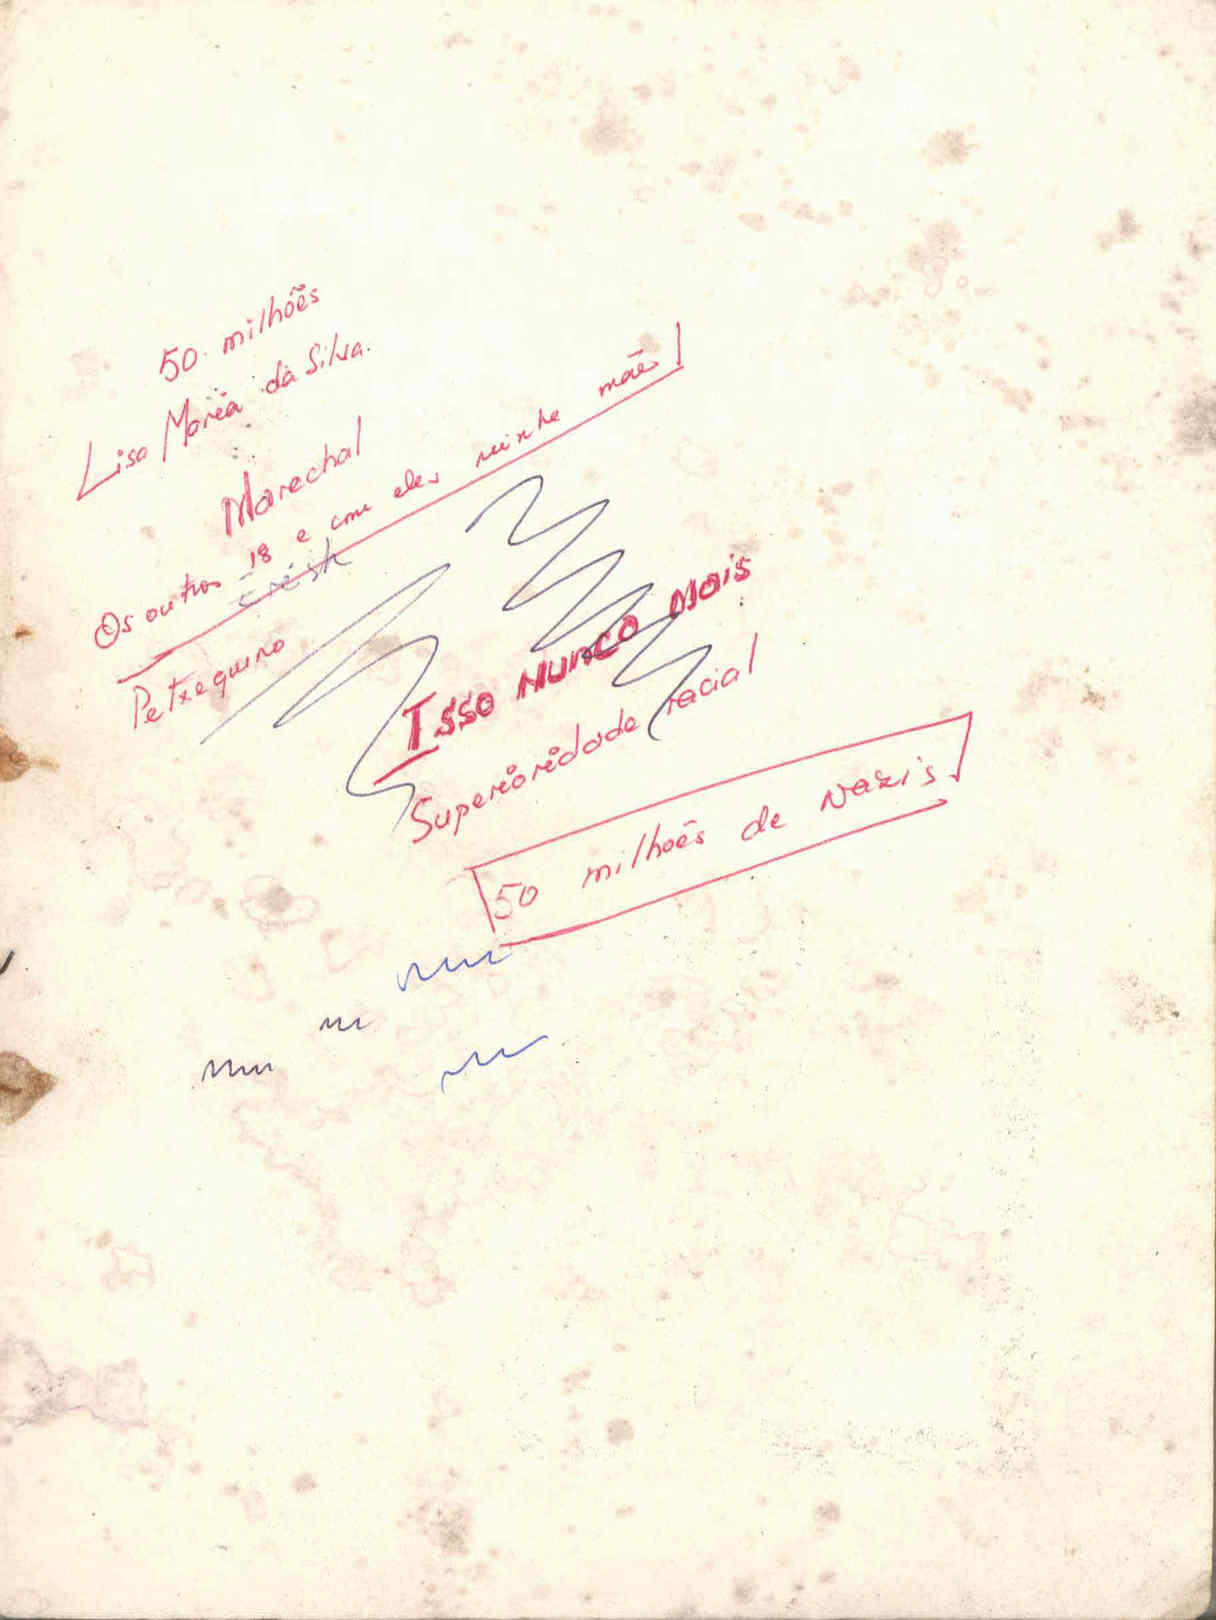 50 milhões
Lisa Maria da Silva.
Marechal
Os outros 18 e com eles minha mãe!
Petxequino
Isso Nunca Mais
Superioridade racial
50 milhões de Nazis